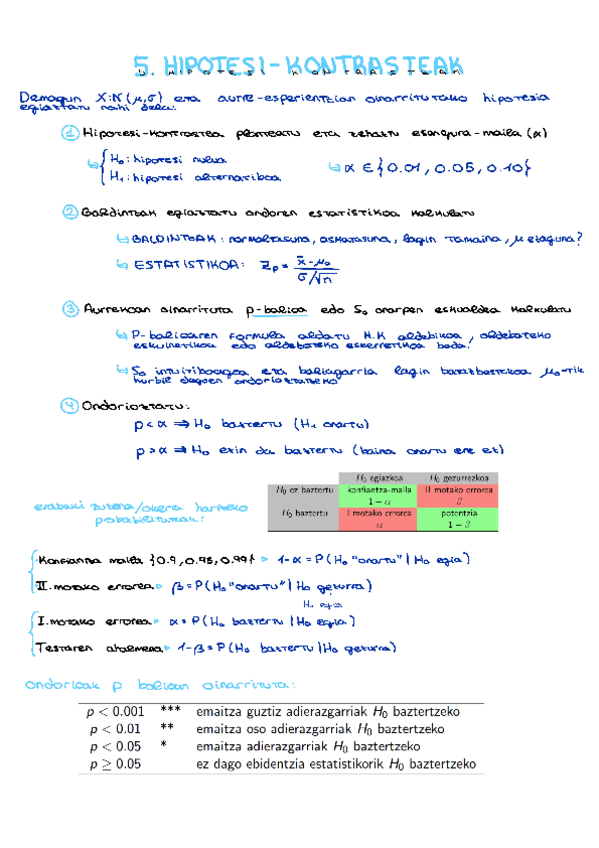 5. HIPOTESI-KONTRASTEAK
Demagun X:N(μ,σ) eta aurre-esperientzian oinarritutako hipotesia
egiaztatu nahi dela:
① Hipotesi-kontrastea planteatu eta zehaztu esangura-maila (α)
↳ { H₀: hipotesi nulua
H₁: hipotesi alternatiboa
↳ α ∈ {0.01, 0.05, 0.10}
② Baldintzak egiaztatu ondoren estatistikoa kalkulatu
↳ BALDINTZAK: normaltasuna, askatasuna, lagin tamaina, μ ezaguna?
↳ ESTATISTIKOA: Zp = x̄-μ₀ / σ/√n
③ Aurrekoan oinarrituta p-balioa edo S₀ onarpen eskualdea kalkulatu
↳ P-balioaren formula aldatu H.K aldebikoa, aldebateko
eskuinetikoa edo aldebateko ezkerretikoa bada.
↳ S₀ intuitiboagoa eta baliagarria lagin batazbestekoa μ₀-tik
hurbil dagoen ondorioztatzeko
④ Ondorioztatu:
p < α ⇒ H₀ baztertu (H₁ onartu)
p > α ⇒ H₀ ezin da baztertu (baina onartu ere ez)
erabaki zuzena/okerra hartzeko
probabilitateak:
H₀ egiazkoa H₀ gezurrezkoa
H₀ ez baztertu konfiantza-maila II motako errorea
1 − α β
H₀ baztertu I motako errorea potentzia
α 1 − β
Konfiantza maila {0.9, 0.95, 0.99} ▹ 1-α = P(H₀ "onartu" | H₀ egia)
II. motako errorea ▹ β = P(H₀ "onartu" | H₀ gezurra)
H₀ egia
I. motako errorea ▹ α = P(H₀ baztertu | H₀ egia)
Testaren ahalmena ▹ 1-β = P(H₀ baztertu | H₀ gezurra)
ondorioak p balioan oinarrituta:
p < 0.001 *** emaitza guztiz adierazgarriak H₀ baztertzeko
p < 0.01 ** emaitza oso adierazgarriak H₀ baztertzeko
p < 0.05 * emaitza adierazgarriak H₀ baztertzeko
p ≥ 0.05 ez dago ebidentzia estatistikorik H₀ baztertzeko